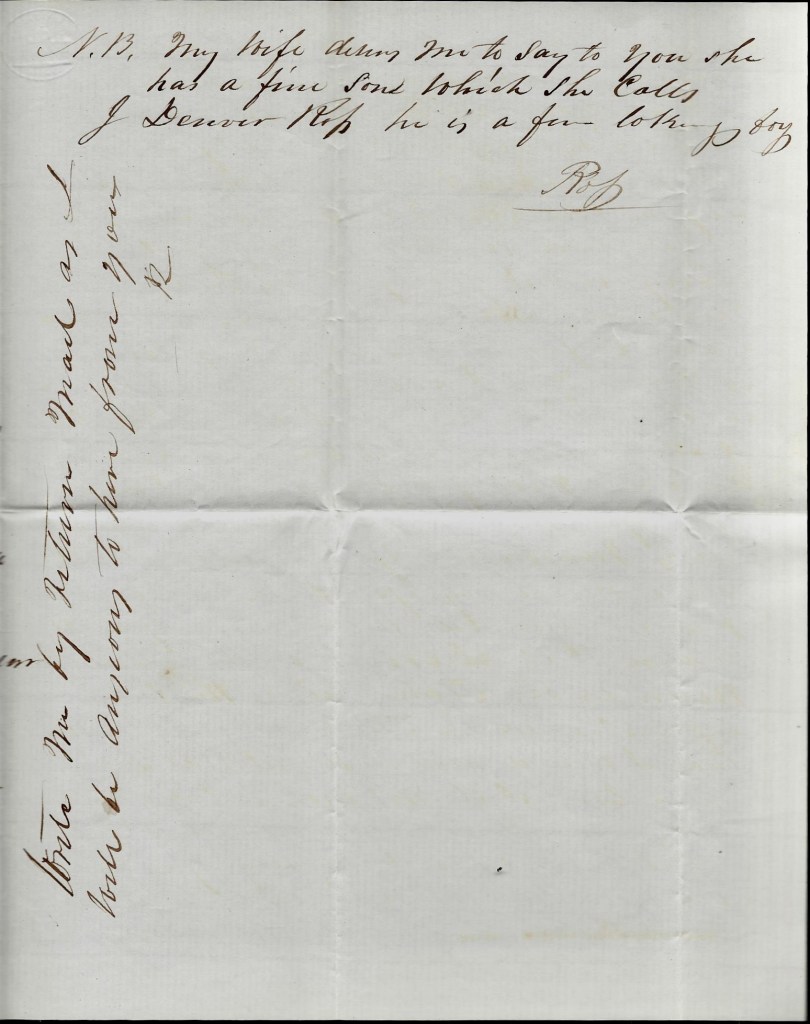 N.B. My Wife desires Me to Say to You she
has a fine Son Which She Calls
J Denver Ross he is a fine looking boy
Ross
Write Me by Return Mail as I
Will be Anxious to here from you
R